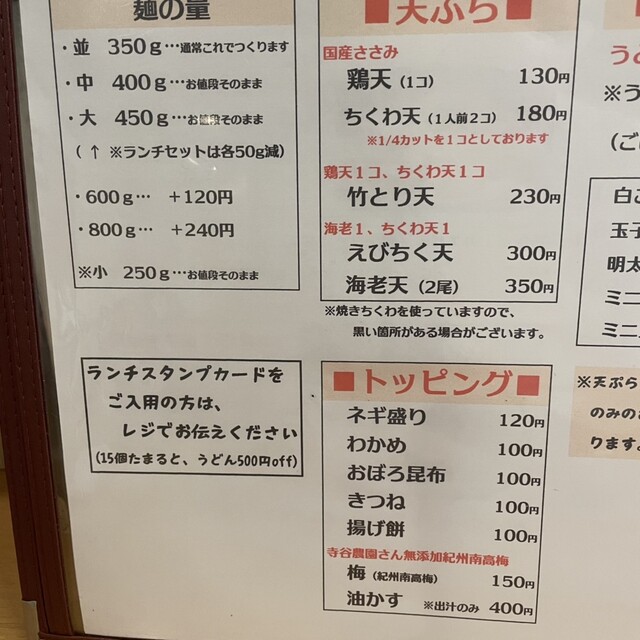 麺の量
・並 350g…通常これでつくります
・中 400g…お値段そのまま
・大 450g…お値段そのまま
( ↑ ※ランチセットは各50g減)
・600g… +120円
・800g… +240円
※小 250g…お値段そのまま
ランチスタンプカードを
ご入用の方は、
レジでお伝えください
(15個たまると、うどん500円off)
■天ぷら■
国産ささみ
鶏天(1コ) 130円
ちくわ天(1人前2コ) 180円
※1/4カットを1コとしております
鶏天1コ、ちくわ天1コ
竹とり天 230円
海老1、ちくわ天1
えびちく天 300円
海老天(2尾) 350円
※焼きちくわを使っていますので、
黒い箇所がある場合がございます。
■トッピング■
ネギ盛り 120円
わかめ 100円
おぼろ昆布 100円
きつね 100円
揚げ餅 100円
寺谷農園さん無添加紀州南高梅
梅(紀州南高梅) 150円
油かす ※出汁のみ 400円
う
※う
(ご
白
玉子
明太
ミニ
ミニ
※天ぷら
のみの
ります